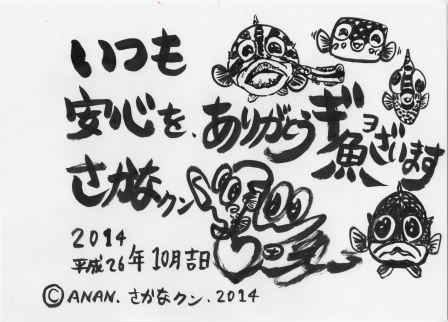 いつも
安心を、ありがとうギョ魚ざいます
さかなクン
2014
平成26年10月吉日
©ANAN.さかなクン.2014